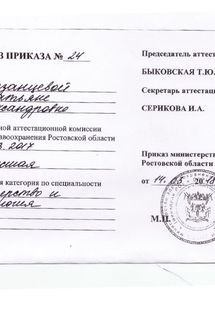 З ПРИКАЗА № 24
занцевой
атьяне
ксандровне
ной аттестационной комиссии
авоохранения Ростовской области
2017
сшая
ая категория по специальности
ерство и
логия
Председатель аттеста
БЫКОВСКАЯ Т.Ю.
Секретарь аттестац
СЕРИКОВА И.А.
Приказ министерств
Ростовской области
от 14. 20
М.П.